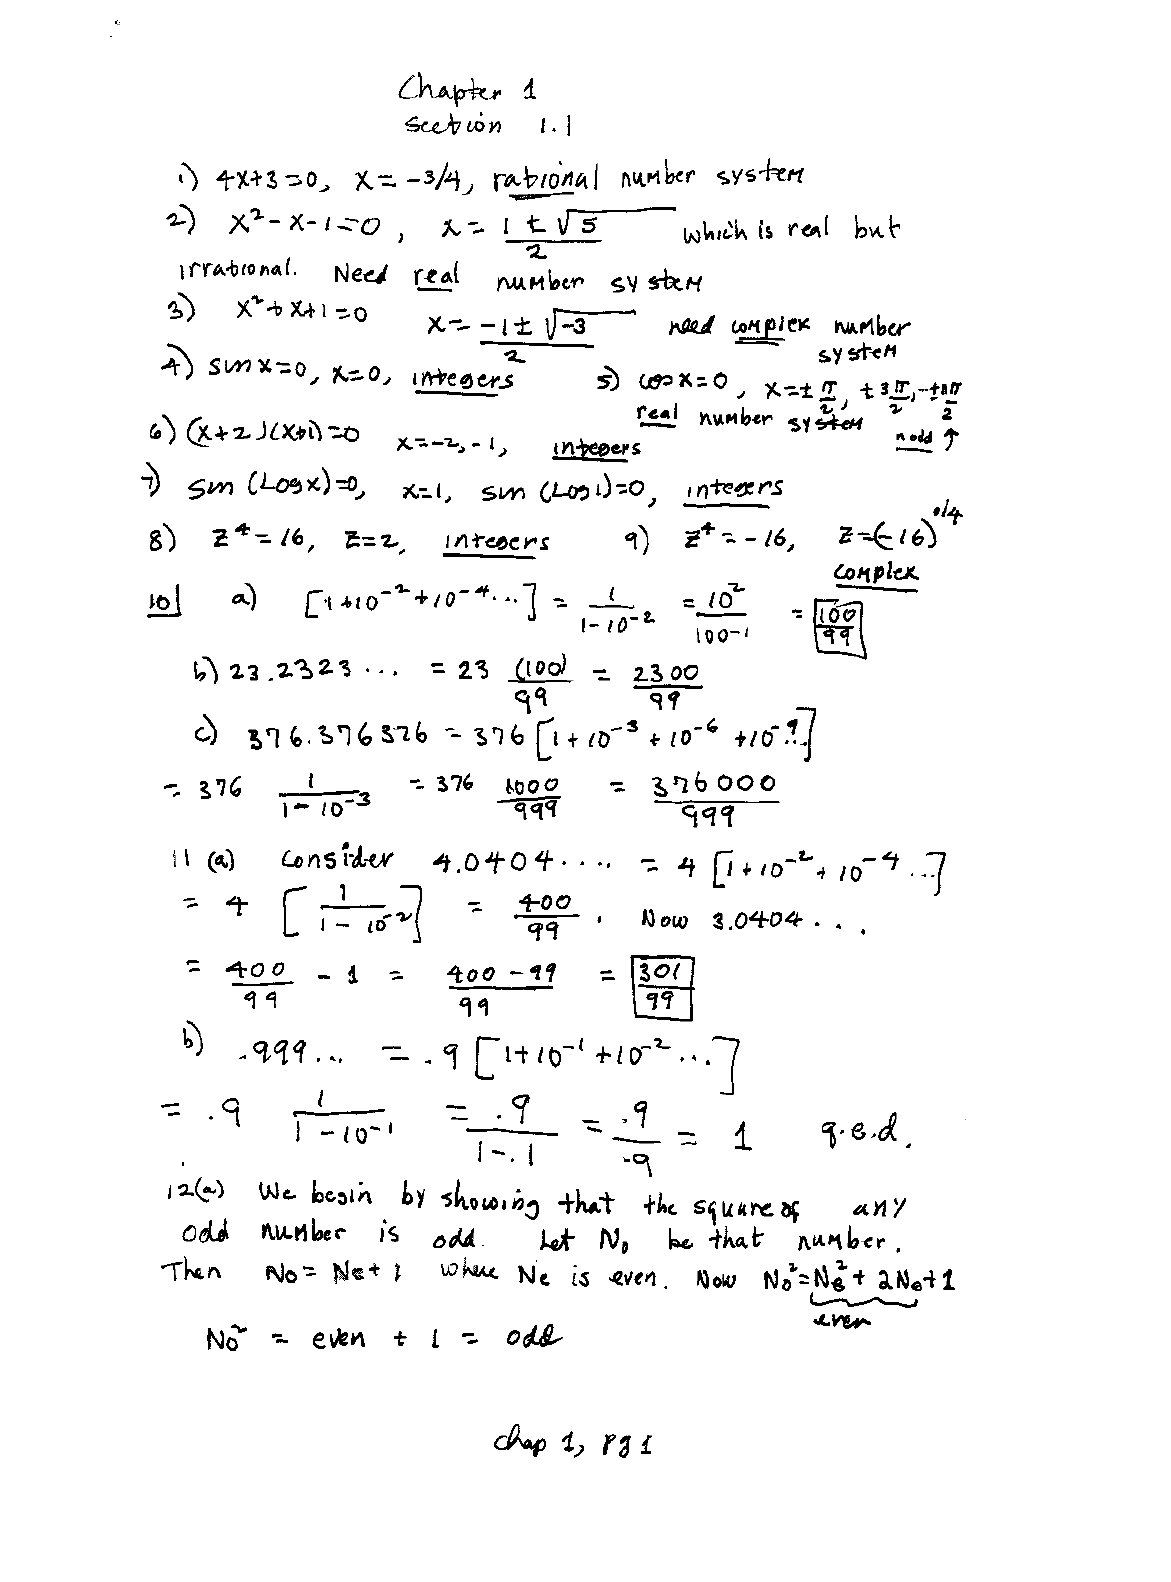 Chapter 1
Section 1.1
1) 4x+3=0, x= -3/4, rational number system
2) x²-x-1=0, x= (1 ± √5)/2 which is real but
irrational. Need real number system
3) x²+x+1=0 x= (-1 ± √-3)/2 need complex number system
4) sin x=0, x=0, integers 5) cos x=0, x=± π/2, ± 3π/2, ± nπ/2
real number system n odd ↑
6) (x+2)(x+1)=0 x=-2,-1, integers
7) sin (Log x)=0, x=1, sin (Log 1)=0, integers
8) z⁴=16, z=2, integers 9) z⁴=-16, z=(-16)^(1/4)
complex
10] a) [1+10⁻²+10⁻⁴...] = 1/(1-10⁻²) = 10²/(100-1) = 100/99
b) 23.2323... = 23 (100)/99 = 2300/99
c) 376.376376 = 376 [1+10⁻³+10⁻⁶+10⁻⁹..]
= 376 1/(1-10⁻³) = 376 1000/999 = 376000/999
11 (a) Consider 4.0404.... = 4 [1+10⁻²+10⁻⁴...]
= 4 [1/(1-10⁻²)] = 400/99. Now 3.0404...
= 400/99 - 1 = (400-99)/99 = 301/99
b) .999... = .9 [1+10⁻¹+10⁻²...]
= .9 1/(1-10⁻¹) = .9/(1-.1) = .9/.9 = 1 q.e.d.
12(a) We begin by showing that the square of any
odd number is odd. Let N₀ be that number.
Then N₀= Ne+1 where Ne is even. Now N₀²=Ne²+2Ne+1
even
N₀² = even + 1 = odd
chap 1, pg 1